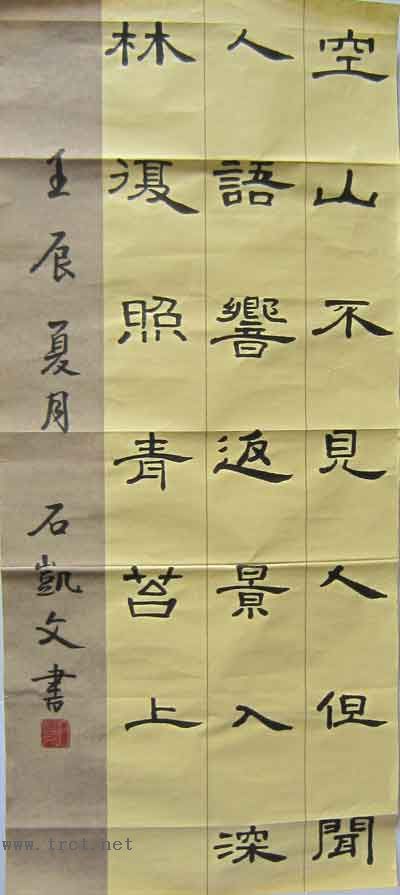 空山不見人但聞
人語響返景入深
林復照青苔上
壬辰夏月 石凱文書
www.trct.net